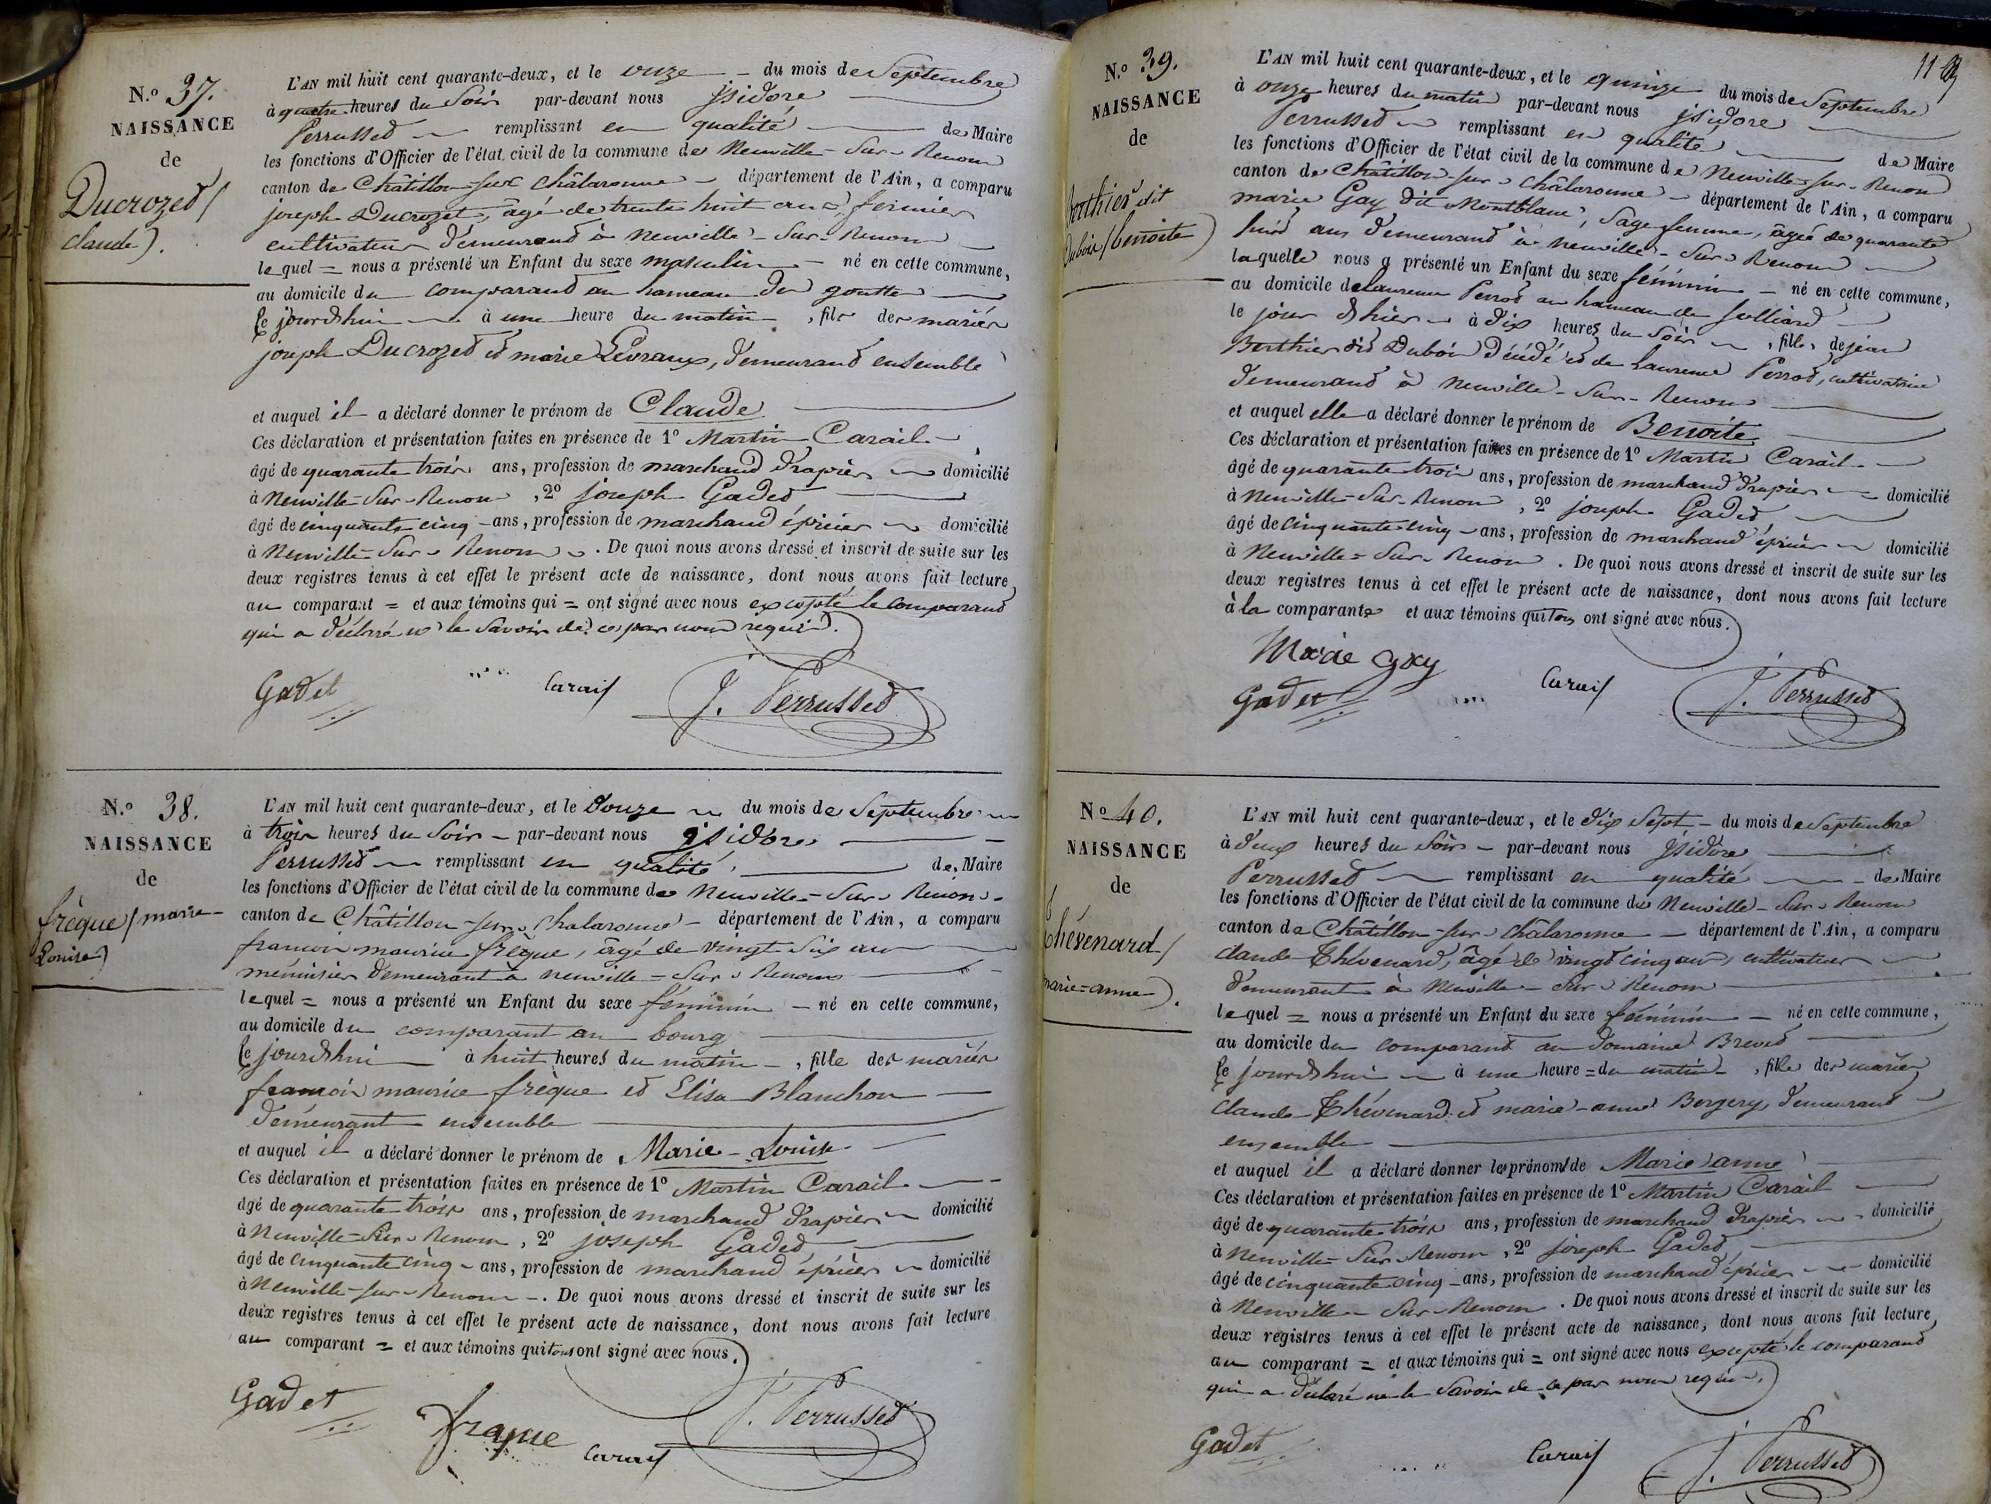 N.º 37.
NAISSANCE
de
Ducrozet (
claude).
L'AN mil huit cent quarante-deux, et le onze du mois de Septembre
à quatre heures du Soir par-devant nous jsidore
Perrusset remplissant en qualité de Maire
les fonctions d'Officier de l'état civil de la commune de Neuville-Sur-Renom
canton de Châtillon-sur-châlaronne département de l'Ain, a comparu
joseph Ducrozet, âgé de trente huit ans, fermier
cultivateur demeurand à Neuville-Sur-Renom
lequel = nous a présenté un Enfant du sexe masculin né en cette commune,
au domicile du comparand au hameau du goutte
le jourdhui à une heure du matin, fils des mariés
joseph Ducrozed et marie, demeurand ensemble
et auquel il a déclaré donner le prénom de Claude
Ces déclaration et présentation faites en présence de 1º Martin Carail
âgé de quarante trois ans, profession de marchand drapier domicilié
à Neuville-Sur-Renom, 2º joseph Gaded
âgé de cinquante cinq ans, profession de marchand épicier domicilié
à Neuville-Sur-Renom. De quoi nous avons dressé et inscrit de suite sur les
deux registres tenus à cet effet le présent acte de naissance, dont nous avons fait lecture
au comparant = et aux témoins qui = ont signé avec nous excepté le comparand
qui a déclaré ne le savoir de ce par nous requis.
Gadet Carail J. Perrusset
N.º 38.
NAISSANCE
de
frèque (marie-
Louise)
L'AN mil huit cent quarante-deux, et le douze du mois de Septembre
à trois heures du Soir par-devant nous jsidore
Perrusset remplissant en qualité de Maire
les fonctions d'Officier de l'état civil de la commune de Neuville-Sur-Renom
canton de Châtillon-sur-chalaronne département de l'Ain, a comparu
francois maurice frèque, âgé de vingt six ans
menuisier demeurant à neuville-Sur-Renom
lequel = nous a présenté un Enfant du sexe féminin né en cette commune,
au domicile du comparant au bourg
le jourdhui à huit heures du matin, fille des mariés
francois maurice frèque et Elisa Blanchon
demeurant ensemble
et auquel il a déclaré donner le prénom de Marie-Louise
Ces déclaration et présentation faites en présence de 1º Martin Carail
âgé de quarante trois ans, profession de marchand drapier domicilié
à Neuville-Sur-Renom, 2º joseph Gaded
âgé de cinquante cinq ans, profession de marchand épicier domicilié
à Neuville-sur-Renom. De quoi nous avons dressé et inscrit de suite sur les
deux registres tenus à cet effet le présent acte de naissance, dont nous avons fait lecture
au comparant = et aux témoins qui tous ont signé avec nous.
Gadet fraque Carail J. Perrusset
N.º 39.
NAISSANCE
de
Berthier dit
Dubois (benoite)
L'AN mil huit cent quarante-deux, et le quinze du mois de Septembre
à onze heures du matin par-devant nous jsidore
Perrusset remplissant en qualité de Maire
les fonctions d'Officier de l'état civil de la commune de Neuville-sur-Renom
canton de Châtillon-sur-châlaronne département de l'Ain, a comparu
marie Gay dit Montblanc, Sage femme, âgée de quarante
huit ans demeurand à neuville-Sur-Renom
laquelle nous a présenté un Enfant du sexe féminin né en cette commune,
au domicile de Laurence Perrod au hameau de
le jour d'hier à dix heures du Soir, fille de jean
Berthier dit Dubois décédé et de Laurence Perrod, cultivatrice
demeurand à Neuville-Sur-Renom
et auquel elle a déclaré donner le prénom de Benoite
Ces déclaration et présentation faites en présence de 1º Martin Carail
âgé de quarante trois ans, profession de marchand drapier domicilié
à Neuville-Sur-Renom, 2º joseph Gaded
âgé de cinquante cinq ans, profession de marchand épicier domicilié
à Neuville-Sur-Renom. De quoi nous avons dressé et inscrit de suite sur les
deux registres tenus à cet effet le présent acte de naissance, dont nous avons fait lecture
à la comparante et aux témoins qui tous ont signé avec nous.
Marie gay
Gadet Carail J. Perrusset
Nº 40.
NAISSANCE
de
Thévenard (
marie-anne).
L'AN mil huit cent quarante-deux, et le dix Sept du mois de Septembre
à deux heures du Soir par-devant nous jsidore
Perrusset remplissant en qualité de Maire
les fonctions d'Officier de l'état civil de la commune de Neuville-Sur-Renom
canton de Châtillon-sur-châlaronne département de l'Ain, a comparu
claude Thévenard, âgé de vingt cinq ans, cultivateur
demeurant à Neuville-Sur-Renom
lequel = nous a présenté un Enfant du sexe féminin né en cette commune,
au domicile du comparand au domaine Breved
le jourdhui à une heure = du matin, fille des mariés
claude Thévenard et marie-anne Bergery, demeurand
ensemble
et auquel il a déclaré donner les prénoms de Marie anne
Ces déclaration et présentation faites en présence de 1º Martin Carail
âgé de quarante trois ans, profession de marchand drapier domicilié
à Neuville-Sur-Renom, 2º joseph Gaded
âgé de cinquante cinq ans, profession de marchand épicier domicilié
à Neuville-Sur-Renom. De quoi nous avons dressé et inscrit de suite sur les
deux registres tenus à cet effet le présent acte de naissance, dont nous avons fait lecture
au comparant = et aux témoins qui = ont signé avec nous excepté le comparand
qui a déclaré ne le Savoir de ce par nous requis.
Gadet Carail J. Perrusset